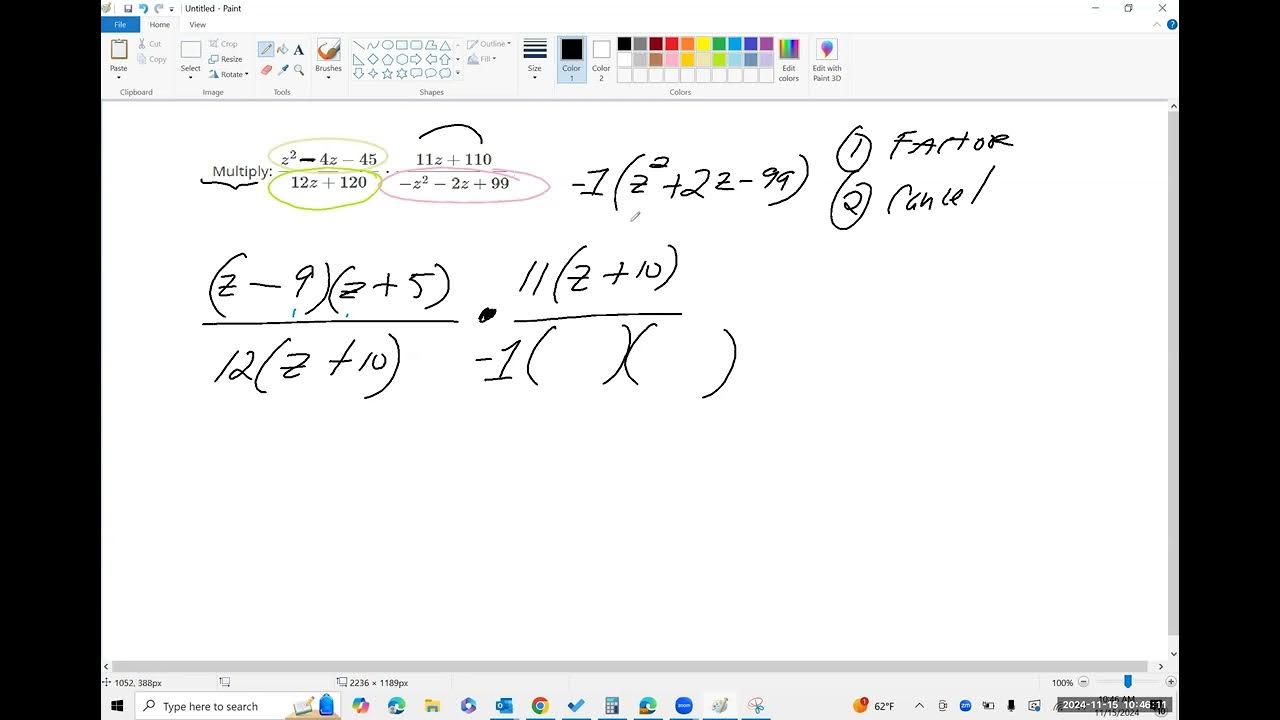 Untitled - Paint
File Home View
Paste Cut Copy Clipboard
Select Crop Resize Rotate Image
Tools
Brushes
Shapes Outline Fill
Size
Color 1 Color 2 Colors
Edit colors Edit with Paint 3D
Multiply: \frac{z^2 - 4z - 45}{12z + 120} · \frac{11z + 110}{-z^2 - 2z + 99}
-1(z^2 + 2z - 99)
① FACTOR
② Cancel
\frac{(z - 9)(z + 5)}{12(z + 10)} • \frac{11(z + 10)}{-1( )( )}
1052, 388px 2236 × 1189px 100%
Type here to search 62°F
2024-11-15 10:46:11